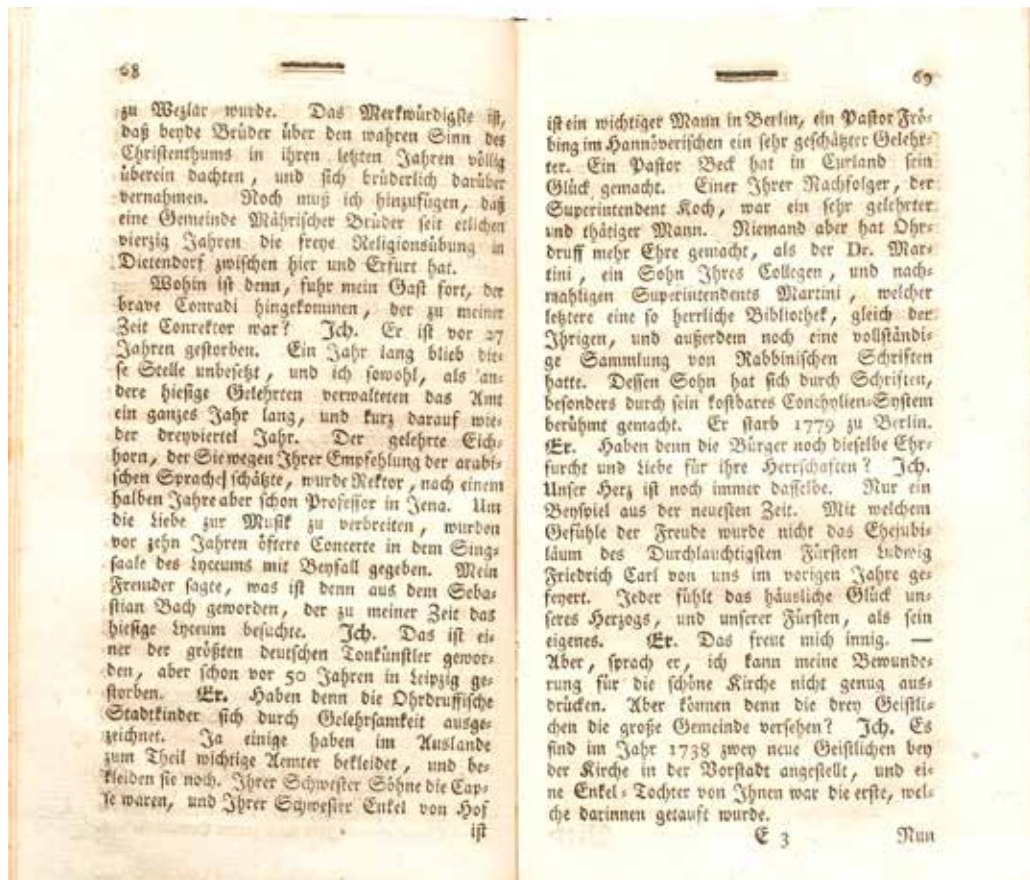 68
zu Wezlar wurde. Das Merkwürdigste ist,
daß beyde Brüder über den wahren Sinn des
Christenthums in ihren letzten Jahren völlig
überein dachten, und sich brüderlich darüber
vernahmen. Noch muß ich hinzufügen, daß
eine Gemeinde Mährischer Brüder seit etlichen
vierzig Jahren die freye Religionsübung in
Dietendorf zwischen hier und Erfurt hat.
Wohin ist denn, fuhr mein Gast fort, der
brave Conradi hingekommen, der zu meiner
Zeit Conrektor war? Ich. Er ist vor 27
Jahren gestorben. Ein Jahr lang blieb die-
se Stelle unbesetzt, und ich sowohl, als an-
dere hiesige Gelehrten verwalteten das Amt
ein ganzes Jahr lang, und kurz darauf wie-
der dreyviertel Jahr. Der gelehrte Eich-
horn, der Sie wegen Ihrer Empfehlung der arabi-
schen Sprache schätzte, wurde Rektor, nach einem
halben Jahre aber schon Professor in Jena. Um
die Liebe zur Musik zu verbreiten, wurden
vor zehn Jahren öftere Concerte in dem Sing-
saale des Lyceums mit Beyfall gegeben. Mein
Fremder sagte, was ist denn aus dem Seba-
stian Bach geworden, der zu meiner Zeit das
hiesige Lyceum besuchte. Ich. Das ist ei-
ner der größten deutschen Tonkünstler gewor-
den, aber schon vor 50 Jahren in Leipzig ge-
storben. Er. Haben denn die Ohrdruffische
Stadtkinder sich durch Gelehrsamkeit ausge-
zeichnet. Ja einige haben im Auslande
zum Theil wichtige Aemter bekleidet, und be-
kleiden sie noch. Ihrer Schwester Söhne die Cap-
se waren, und Ihrer Schwester Enkel von Hof
ist
69
ist ein wichtiger Mann in Berlin, ein Pastor Frö-
bing im Hannöverischen ein sehr geschätzter Gelehr-
ter. Ein Pastor Beck hat in Curland sein
Glück gemacht. Einer Ihrer Nachfolger, der
Superintendent Koch, war ein sehr gelehrter
und thätiger Mann. Niemand aber hat Ohr-
druff mehr Ehre gemacht, als der Dr. Mar-
tini, ein Sohn Ihres Collegen, und nach-
mahligen Superintendents Martini, welcher
letztere eine so herrliche Bibliothek, gleich der
Ihrigen, und außerdem noch eine vollständi-
ge Sammlung von Rabbinischen Schriften
hatte. Dessen Sohn hat sich durch Schriften,
besonders durch sein kostbares Conchylien-System
berühmt gemacht. Er starb 1779 zu Berlin.
Er. Haben denn die Bürger noch dieselbe Ehr-
furcht und Liebe für ihre Herrschaften? Ich.
Unser Herz ist noch immer dasselbe. Nur ein
Beyspiel aus der neuesten Zeit. Mit welchem
Gefühle der Freude wurde nicht das Ehejubi-
läum des Durchlauchtigsten Fürsten Ludwig
Friedrich Carl von uns im vorigen Jahre ge-
feyert. Jeder fühlt das häusliche Glück un-
seres Herzogs, und unserer Fürsten, als sein
eigenes. Er. Das freut mich innig. —
Aber, sprach er, ich kann meine Bewunde-
rung für die schöne Kirche nicht genug aus-
drücken. Aber können denn die drey Geistli-
chen die große Gemeinde versehen? Ich. Es
sind im Jahr 1738 zwey neue Geistlichen bey
der Kirche in der Vorstadt angestellt, und ei-
ne Enkel-Tochter von Ihnen war die erste, wel-
che darinnen getauft wurde.
E 3 Nun